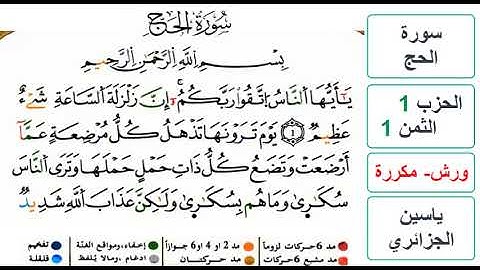 سُورَةُ الحَجِّ
بِسْمِ اللَّهِ الرَّحْمَٰنِ الرَّحِيمِ
يَٰٓأَيُّهَا النَّاسُ اتَّقُوا رَبَّكُمُۥٓ إِنَّ زَلْزَلَةَ السَّاعَةِ شَےْءٌ
عَظِيمٌ ١ يَوْمَ تَرَوْنَهَا تَذْهَلُ كُلُّ مُرْضِعَةٍ عَمَّآ
أَرْضَعَتْ وَتَضَعُ كُلُّ ذَاتِ حَمْلٍ حَمْلَهَا وَتَرَى النَّاسَ
سُكَٰرَىٰ وَمَا هُم بِسُكَٰرَىٰ وَلَٰكِنَّ عَذَابَ اللَّهِ شَدِيدٌ
مد 6 حركات لزوماً
مد 2 او 4 او 6 جوازاً
إخفاء، ومواقع الغنة
تفخيم
مد مشبع 6 حركات
مد حركتان
ادغام، ومالا يُلفظ
قلقلة
سورة
الحج
الحزب 1
الثمن 1
ورش- مكررة
ياسين
الجزائري